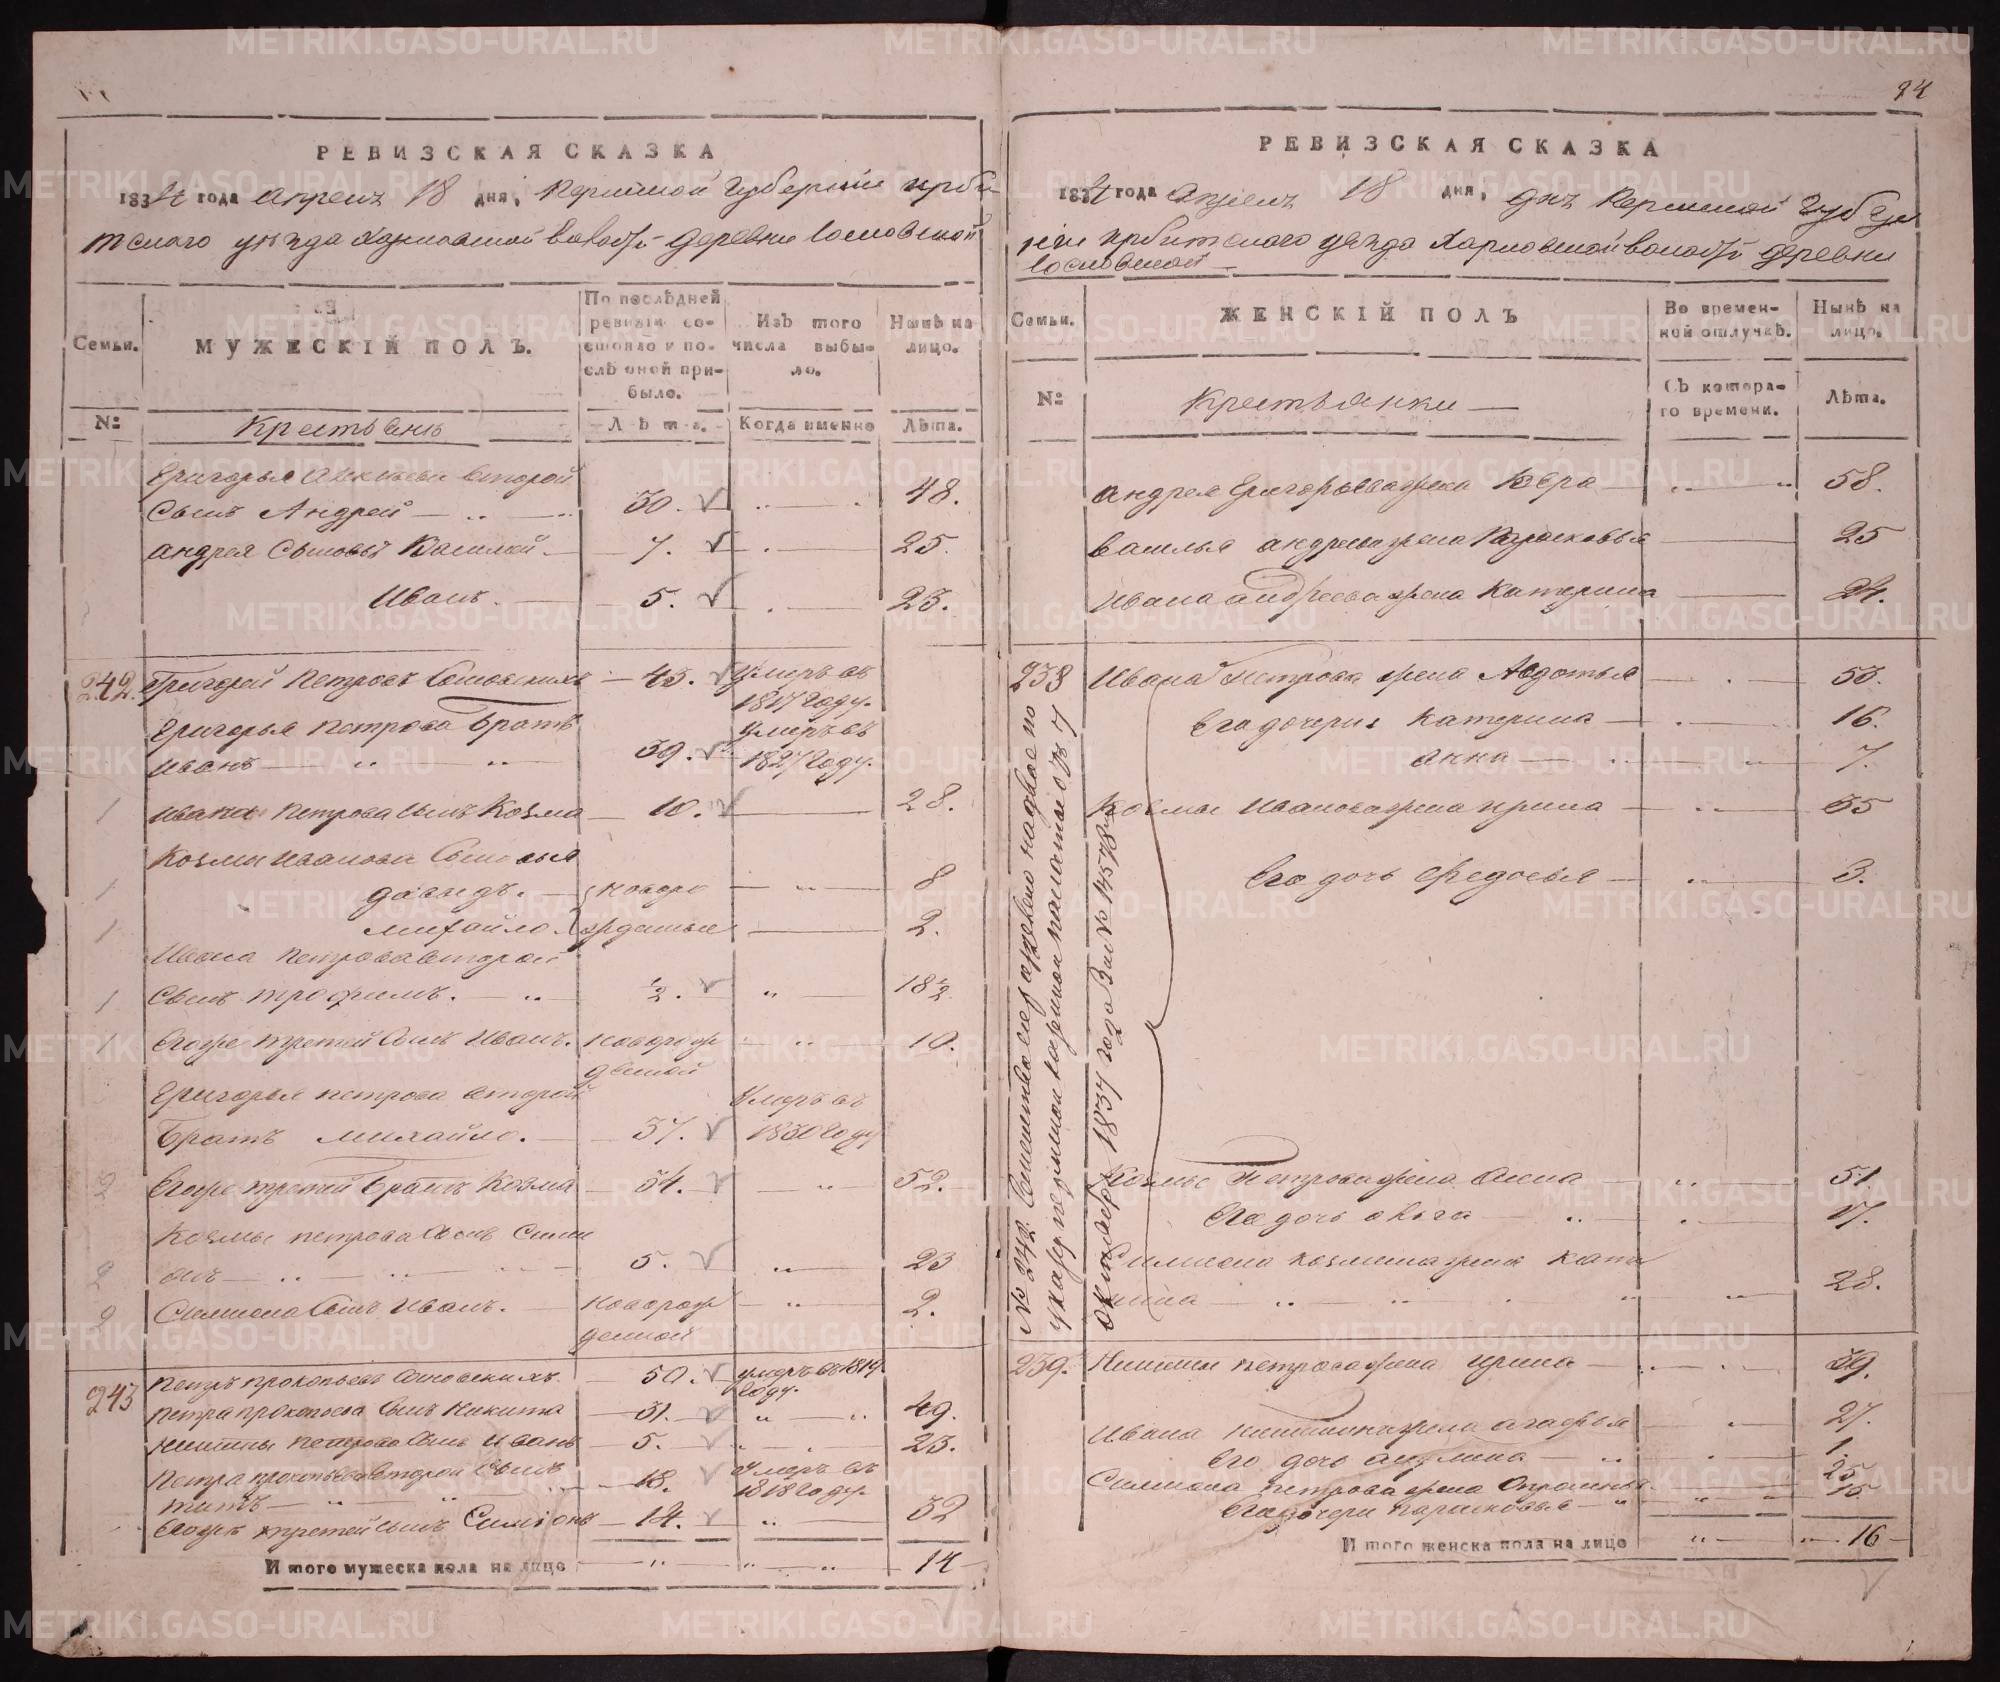 РЕВИЗСКАЯ СКАЗКА
1834 года апреля 18 дня, Пермской Губернии Ирби-
тского уезда Харловской волости деревни Сосновской
Семьи.
МУЖЕСКІЙ ПОЛЪ.
По послѣдней ревизіи состояло и послѣ оной прибыло.
Изъ того числа выбыло.
Нынѣ на лицо.
№
Крестьянъ
Лѣта.
Когда именно
Лѣта.
Григорья второй
Сынъ Андрей 30. 48.
Андрея Сыновья Василей 7. 25.
Иванъ 5. 23.
242. Григорей Петровъ 45. умеръ въ
1817 году.
Григорья Петрова Братъ
Иванъ 39. умеръ въ
1827 году.
1 Ивана Петрова Сынъ Козма 10. 28.
Козмы Иванова Сыновья
1 давыдъ. новоро 8
1 михайло. жденные 2.
Ивана Петрова второй
1 Сынъ трофимъ. ½. 18½
1 Егоже третей Сынъ Иванъ. новорож 10.
денной
Григорья петрова второй умеръ въ
Братъ михайло. 37. 1830 году
2 Егоже третей Братъ Козма 34. 52.
Козмы петрова Сынъ Сими
2 онъ 5. 23
2 Симиона Сынъ Иванъ. новорож 2.
денной
243 Петръ прокопьевъ 50. умеръ въ 1819
году.
Петра прокопьева Сынъ Никита 31. 49.
Никиты петрова Сынъ Иванъ 5. 23.
Петра прокопьева второй Сынъ
титъ 18. умеръ въ
1818 году
Егоже третей сынъ Симіонъ 14. 32
Итого мужеска пола на лицо 14
94
РЕВИЗСКАЯ СКАЗКА
1834 года апреля 18 дня, Пермской Губер
ніи Ирбитского уезда Харловской волости деревни
Сосновской
Семьи.
ЖЕНСКІЙ ПОЛЪ
Во временной отлучкѣ.
Нынѣ на лицо.
№
Крестьянки
Съ котораго времени.
Лѣта.
Андрея Григорьева жена 58.
Василья андреева жена Парасковья 25
Ивана андреева жена Катерина 24.
238 Ивана Петрова жена Авдотья 53.
Его дочери Катерина 16.
анна 7.
Козмы Иванова жена ирина 35
Его дочь Федосья 3.
№ 242. Семейство сіе разделено надвое по
указу пермской казенной палаты отъ 7
октября 1837 года за № 14578мъ
Козмы Петрова жена Анна 51.
Его дочь 17.
Симиона козмина жена Кате
рина 28.
239. Никиты петрова жена ирина 39.
Ивана никитина жена агафья 27.
Его дочь 1.
Симиона петрова жена 25
Его дочери парасковья
Итого женска пола на лицо 16
METRIKI.GASO-URAL.RU